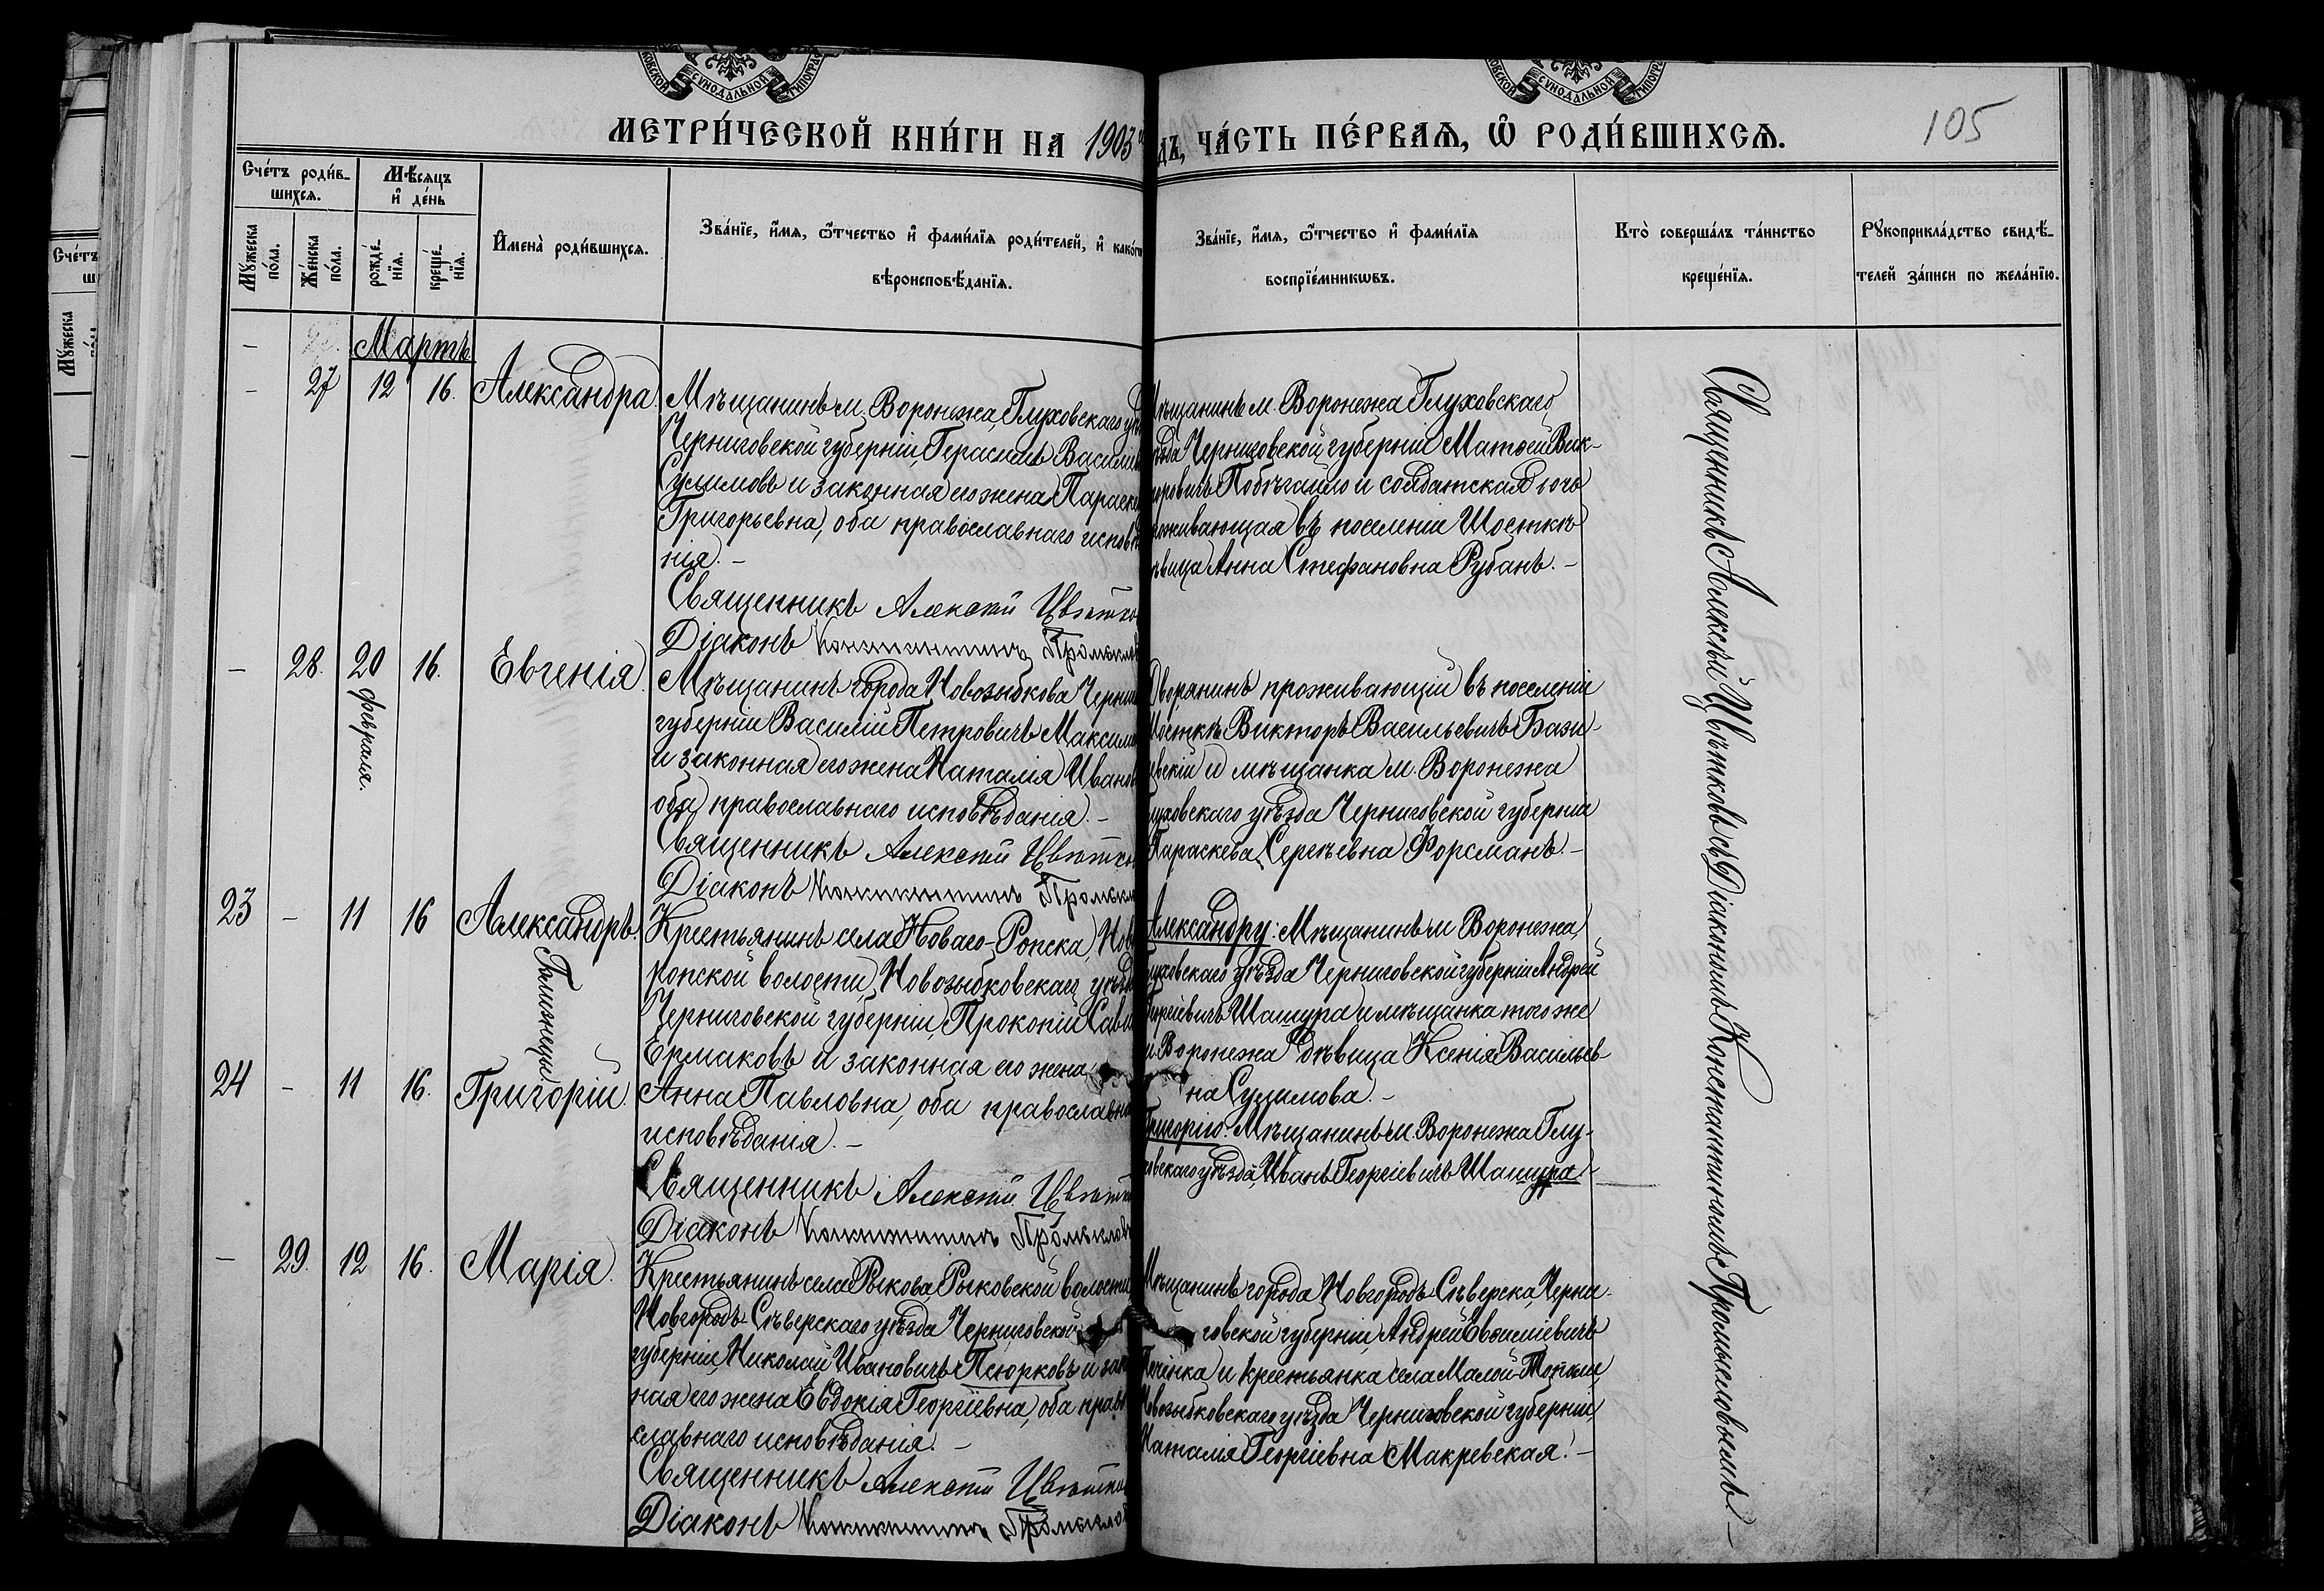 МЕТРИ́ЧЕСКОЙ КНИ́ГИ НА 1903 г
дъ, ЧА́СТЬ ПЕ́РВАѦ, Ѡ РОДИ́ВШИХСѦ.
105
Сче́тъ роди́в-
шихсѧ.
Мѣ́сѧцъ
и де́нь
Мꙋ́жеска
по́ла.
Же́нска
по́ла.
рожде́-
нїѧ.
креще́-
нїѧ.
И҆мена̀ роди́вшихсѧ.
Зва́нїе, и҆́мѧ, ѻ҆́тчество и҆ фами́лїѧ роди́телей, и҆ како́гѡ
вѣроисповѣ́данїѧ.
Зва́нїе, и҆́мѧ, ѻ҆́тчество и҆ фами́лїѧ
воспрїе́мникѡвъ.
Кто̀ соверша́лъ та́инство
креще́нїѧ.
Рꙋкоприкла́дство свидѣ́-
телей за́писи по жела́нїю.
Мартъ
27 12 16. Александра.
Мѣщанинъ м. Воронежа, Глуховскаго уѣ
Черниговской губерніи, Герасимъ Василье
Сулимовъ и законная его жена Параске
Григорьевна, оба православнаго исповѣ
нія. –
Священникъ Алексѣй Цвѣтко
Діаконъ Константинъ Промысло
Мѣщанинъ м. Воронежа Глуховскаго
ѣзда Черниговской губерніи Матѳей Вик-
торовичъ Побѣгайло и солдатская дочь
роживающая въ поселеніи Шосткѣ
ѣвица Анна Стефановна Рубанъ. –
28. 20 февраля. 16. Евгенія.
Мѣщанинъ города Новозыбкова Черни
губерніи Василій Петровичъ Максим
и законная его жена Наталія Ивано
оба православнаго исповѣданія. –
Священникъ Алексѣй Цвѣтко
Діаконъ Константинъ Промысл
Дворянинъ проживающій въ поселеніи
Шосткѣ Викторъ Васильевичъ Бази-
левскій и мѣщанка м. Воронежа
луховскаго уѣзда Черниговской губерніи
Параскева Сергѣевна Форсманъ. –
23 – 11 16 Александръ.
Близнецы
24 – 11 16. Григорій.
Крестьянинъ села Новаго-Ропска, Ново
ропской волости, Новозыбковскаго уѣзд
Черниговской губерніи, Прокопій Савв
Ермаковъ и законная его жена
Анна Павловна, оба православна
исповѣданія. –
Священникъ Алексѣй Цвѣтко
Діаконъ Константинъ Промыслов
Александру: Мѣщанинъ м Воронежа,
луховскаго уѣзда Черниговской губерніи Андрей
Георгіевичъ Шашура и мѣщанка того же
м. Воронежа дѣвица Ксенія Васильев-
на Сулимова. –
Григорію: Мѣщанинъ м. Воронежа Глу-
овскаго уѣзда, Иванъ Георгіевичъ Шашура.
– 29. 12 16. Марія.
Крестьянинъ села Рыкова, Рыковской волости
Новгородъ-Сѣверскаго уѣзда Черниговской
губерніи, Николай Ивановичъ Псюрковъ и зако
ная его жена Евдокія Георгіевна, оба право
славнаго исповѣданія. –
Священникъ Алексѣй Цвѣтко
Діаконъ Константинъ Промыслов
Мѣщанинъ города Новгородъ-Сѣверска, Черни-
говской губерніи, Андрей Евѳиміевичъ
Печёнка и крестьянка села Малой-Топали
Новозыбковскаго уѣзда Черниговской губерніи
Наталія Георгіевна Макревская. –
Священникъ Алексѣй Цвѣтковъ съ Діакономъ Константиномъ Промысловымъ. –